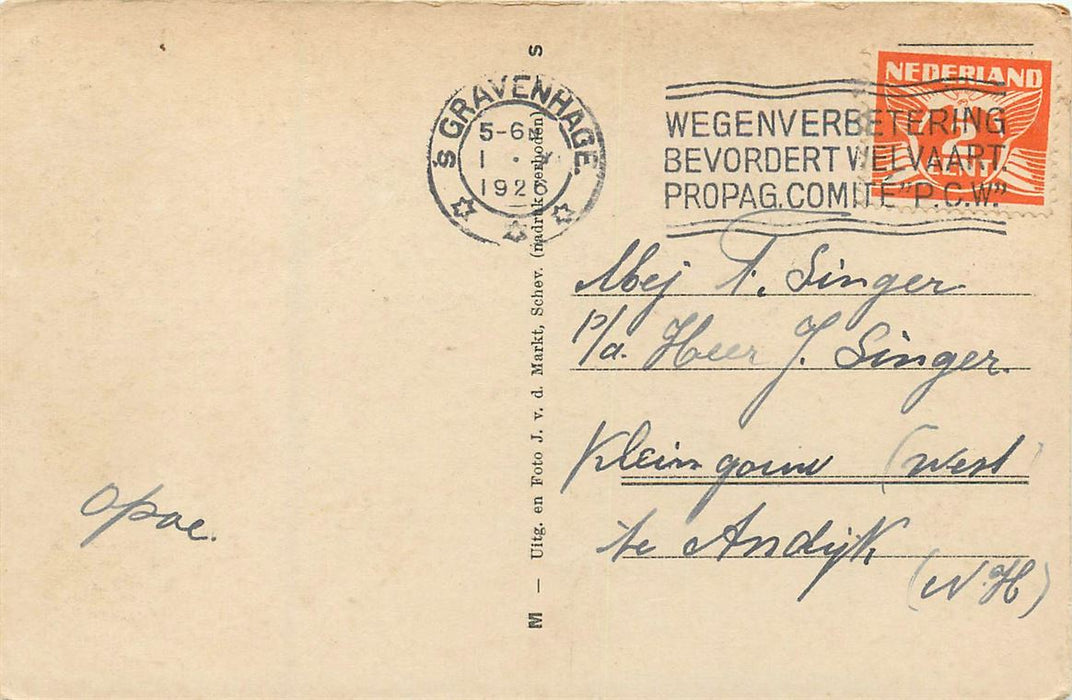 'S GRAVENHAGE.
5-6N
1 · V
1926
WEGENVERBETERING
BEVORDERT WELVAART.
PROPAG. COMITÉ "P.C.W."
NEDERLAND
2
CENT
Mej T. Singer
p/a. Heer J. Singer.
Kleingouw (West
te Andijk
(N.H)
opoe.
M — Uitg. en Foto J. v. d. Markt, Schev. (nadruk verboden) S